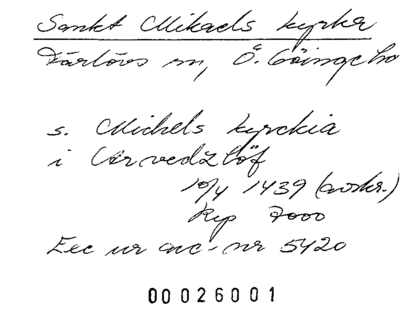 Sankt Mikaels kyrka
Färlövs sn, Ö. Göinge hd
s. Michels kyrckia
i
10/4 1439 (avskr.)
Rep 7000
Exc ur acc-nr 5420
00026001